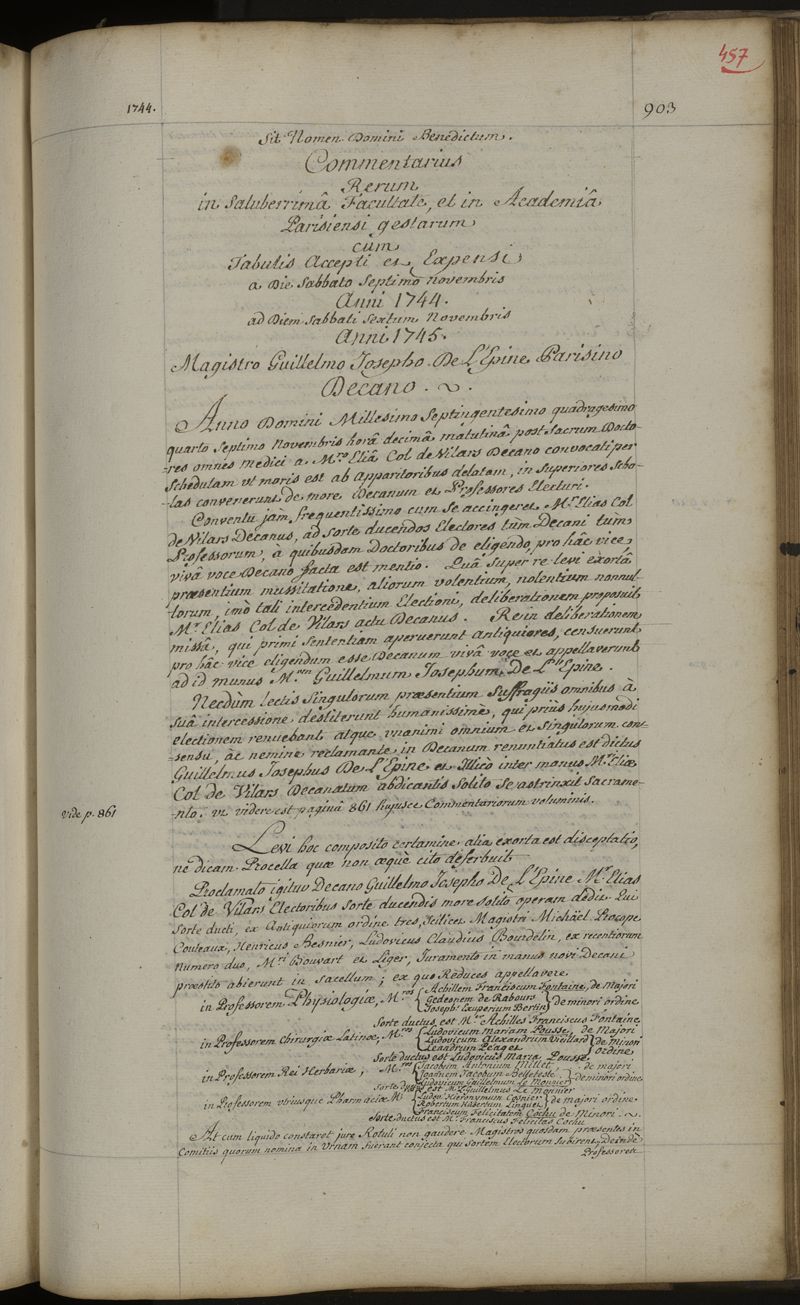 457
1744.
903
Sit Nomen Domini Benedictum.
Commentarius
Rerum
in Saluberrimâ Facultate, et in Academiâ
Parisiensi gestarum
cum
Tabulis Accepti et Expensi
a Die Sabbato Septimo Novembris
Anni 1744.
ad Diem Sabbati Sextum Novembris
Anni 1745.
Magistro Guillelmo Josepho De L'Epine Parisino
Decano.
Anno Domini Millesimo Septingentesimo quadragesimo
quarto Septimo Novembris horâ decimâ matutinâ post Sacrum Docto-
-res omnes medici a M.ro Eliâ Col de Vilars Decano convocati per
Schedulam ut moris est ab apparitoribus delatam, in Superiores Scho-
-las convenerunt de more Decanum et Professores Electuri.
Conventu jam frequentissimo cum se accingeret M.r Elias Col
de Vilars Decanus, ad Sorte ducendos Electores tum Decani tum
Professorum, à quibusdam Doctoribus de eligendo pro hâc vice,
vivâ voce Decano facta est mentio. Quâ super re levi exortâ
præsentium mussitatione, aliorum volentium, nolentium nonnul-
-lorum, imò tali intercedentium Electioni, deliberationem proposuit
M.r Elias Col de Vilars actu Decanus. Re in deliberationem
missâ, qui primi Sententiam aperuerunt antiquiores, censuerunt
pro hâc vice eligendum esse Decanum vivâ voce et appellaverunt
ad id munus M.um Guillelmum Josephum De L'Epine.
Necdùm lectis Singulorum præsentium Suffragiis omnibus à
Suâ intercessione destiterunt humanissime, qui priùs hujusmodi
electionem renuebant, atque unanimi omnium et Singulorum con-
-sensu, ac nemine reclamante in Decanum renuntiatus est dictus
Guillelmus Josephus De L'Epine et Illicò inter manus M. Eliæ
Col de Vilars Decanatum abdicantis Solito Se astrinxit Sacrame-
-nto. ut videre est paginâ 861 hujusce Commentariorum voluminis.
vide p. 861
Levi hoc composito certamine alia exorta est disceptatio,
ne dicam Procella quæ non æquè cito deferbuit
Proclamato igitur Decano Guillelmo Josepho De L'Epine M.r Elias
Col de Vilars Electoribus Sorte ducendis more Solito operam dedit. Qui
Sorte ducti, ex Antiquiorum ordine tres, Scilicet Magistri Michäel Procope
Couteaux, Henricus Besnier, Ludovicus Claudius Bourdelin, ex recentiorum
Numero duo, M.ri Bouvart et Liger, Juramento in manus novi Decani
præstito abierunt in Sacellum; ex quo Reduces appellavere.
in Professorem Physiologiæ, M.ros { Achillem Franciscum Fontaine, de Majori
Gedeonem de Rabours
Joseph. Exuperium Bertin } de minori ordine
Sorte ductus est M.r Achilles Franciscus Fontaine
in Professorem Chirurgiæ Latinæ, M.ros { Ludovicum Mariam Pousse, de Majori
Ludovicum Alexandrum Vieillard
Leandrum Peaget } de minori ordine
Sorte ductus est Ludovicus Maria Pousse
in Professorem Rei Herbariæ, M.ros { Jacobum Antonium Millet, de majori
Joannem Jacobum Belleteste
Ludovicum Guillelmum Le Monnier } de minori ordine
Sorte ductus est M. Guillelmus Le Monnier
in Professorem utriusque Pharmaciæ M. { Ludov. Hieronymum Cosnier
Robertum Hubertum Linguet } de majori ordine
Franciscum Felicitatem Cochu de Minori.
Sorte ductus est M.r Franciscus Felicitas Cochu
At cum liquido constaret jure Rotuli non gaudere Magistros quosdam præsentes in
Comitiis quorum nomina in Urnam fuerant conjecta qui Sortem Electorum Subirent, Deinde
Professores